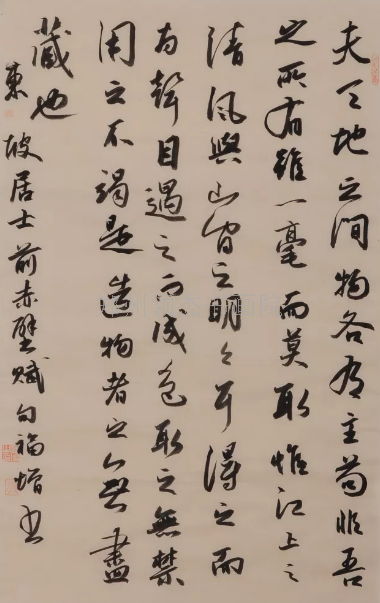 夫天地之間物各有主苟非吾
之所有雖一毫而莫取惟江上之
清風與山間之明月耳得之而
為聲目遇之而成色取之無禁
用之不竭是造物者之無盡
藏也
東坡居士前赤壁賦句福增書